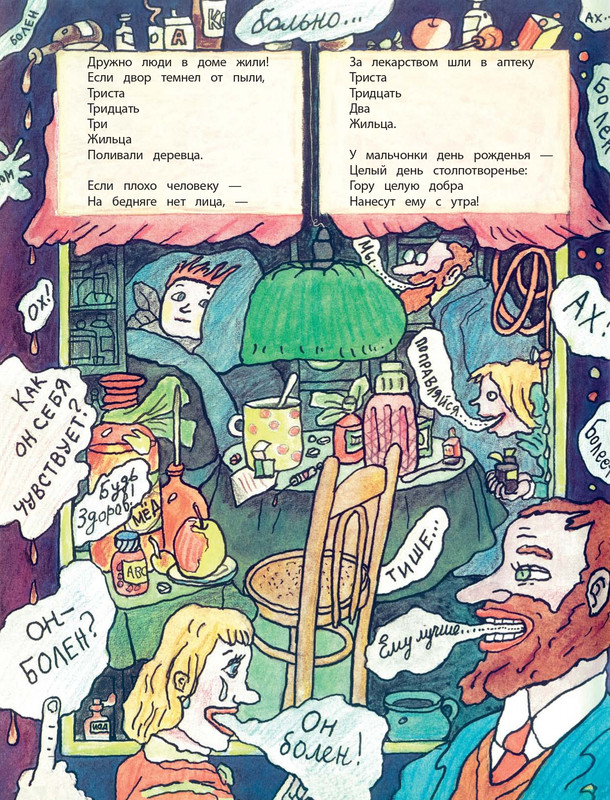 БОЛЕН
А
больно...
АХ..
Дружно люди в доме жили!
Если двор темнел от пыли,
Триста
Тридцать
Три
Жильца
Поливали деревца.
Если плохо человеку —
На бедняге нет лица, —
За лекарством шли в аптеку
Триста
Тридцать
Два
Жильца.
У мальчонки день рожденья —
Целый день столпотворенье:
Гору целую добра
Нанесут ему с утра!
ОХ!
АХ!
ПОПРАВЛЯЙСЯ...
КАК
ОН СЕБЯ
ЧУВСТВУЕТ?
Будь
Здоров!
МЁД
АВС
ТИШЕ...
ОН-
БОЛЕН?
Ему лучше...
ИОД
Он
болен!